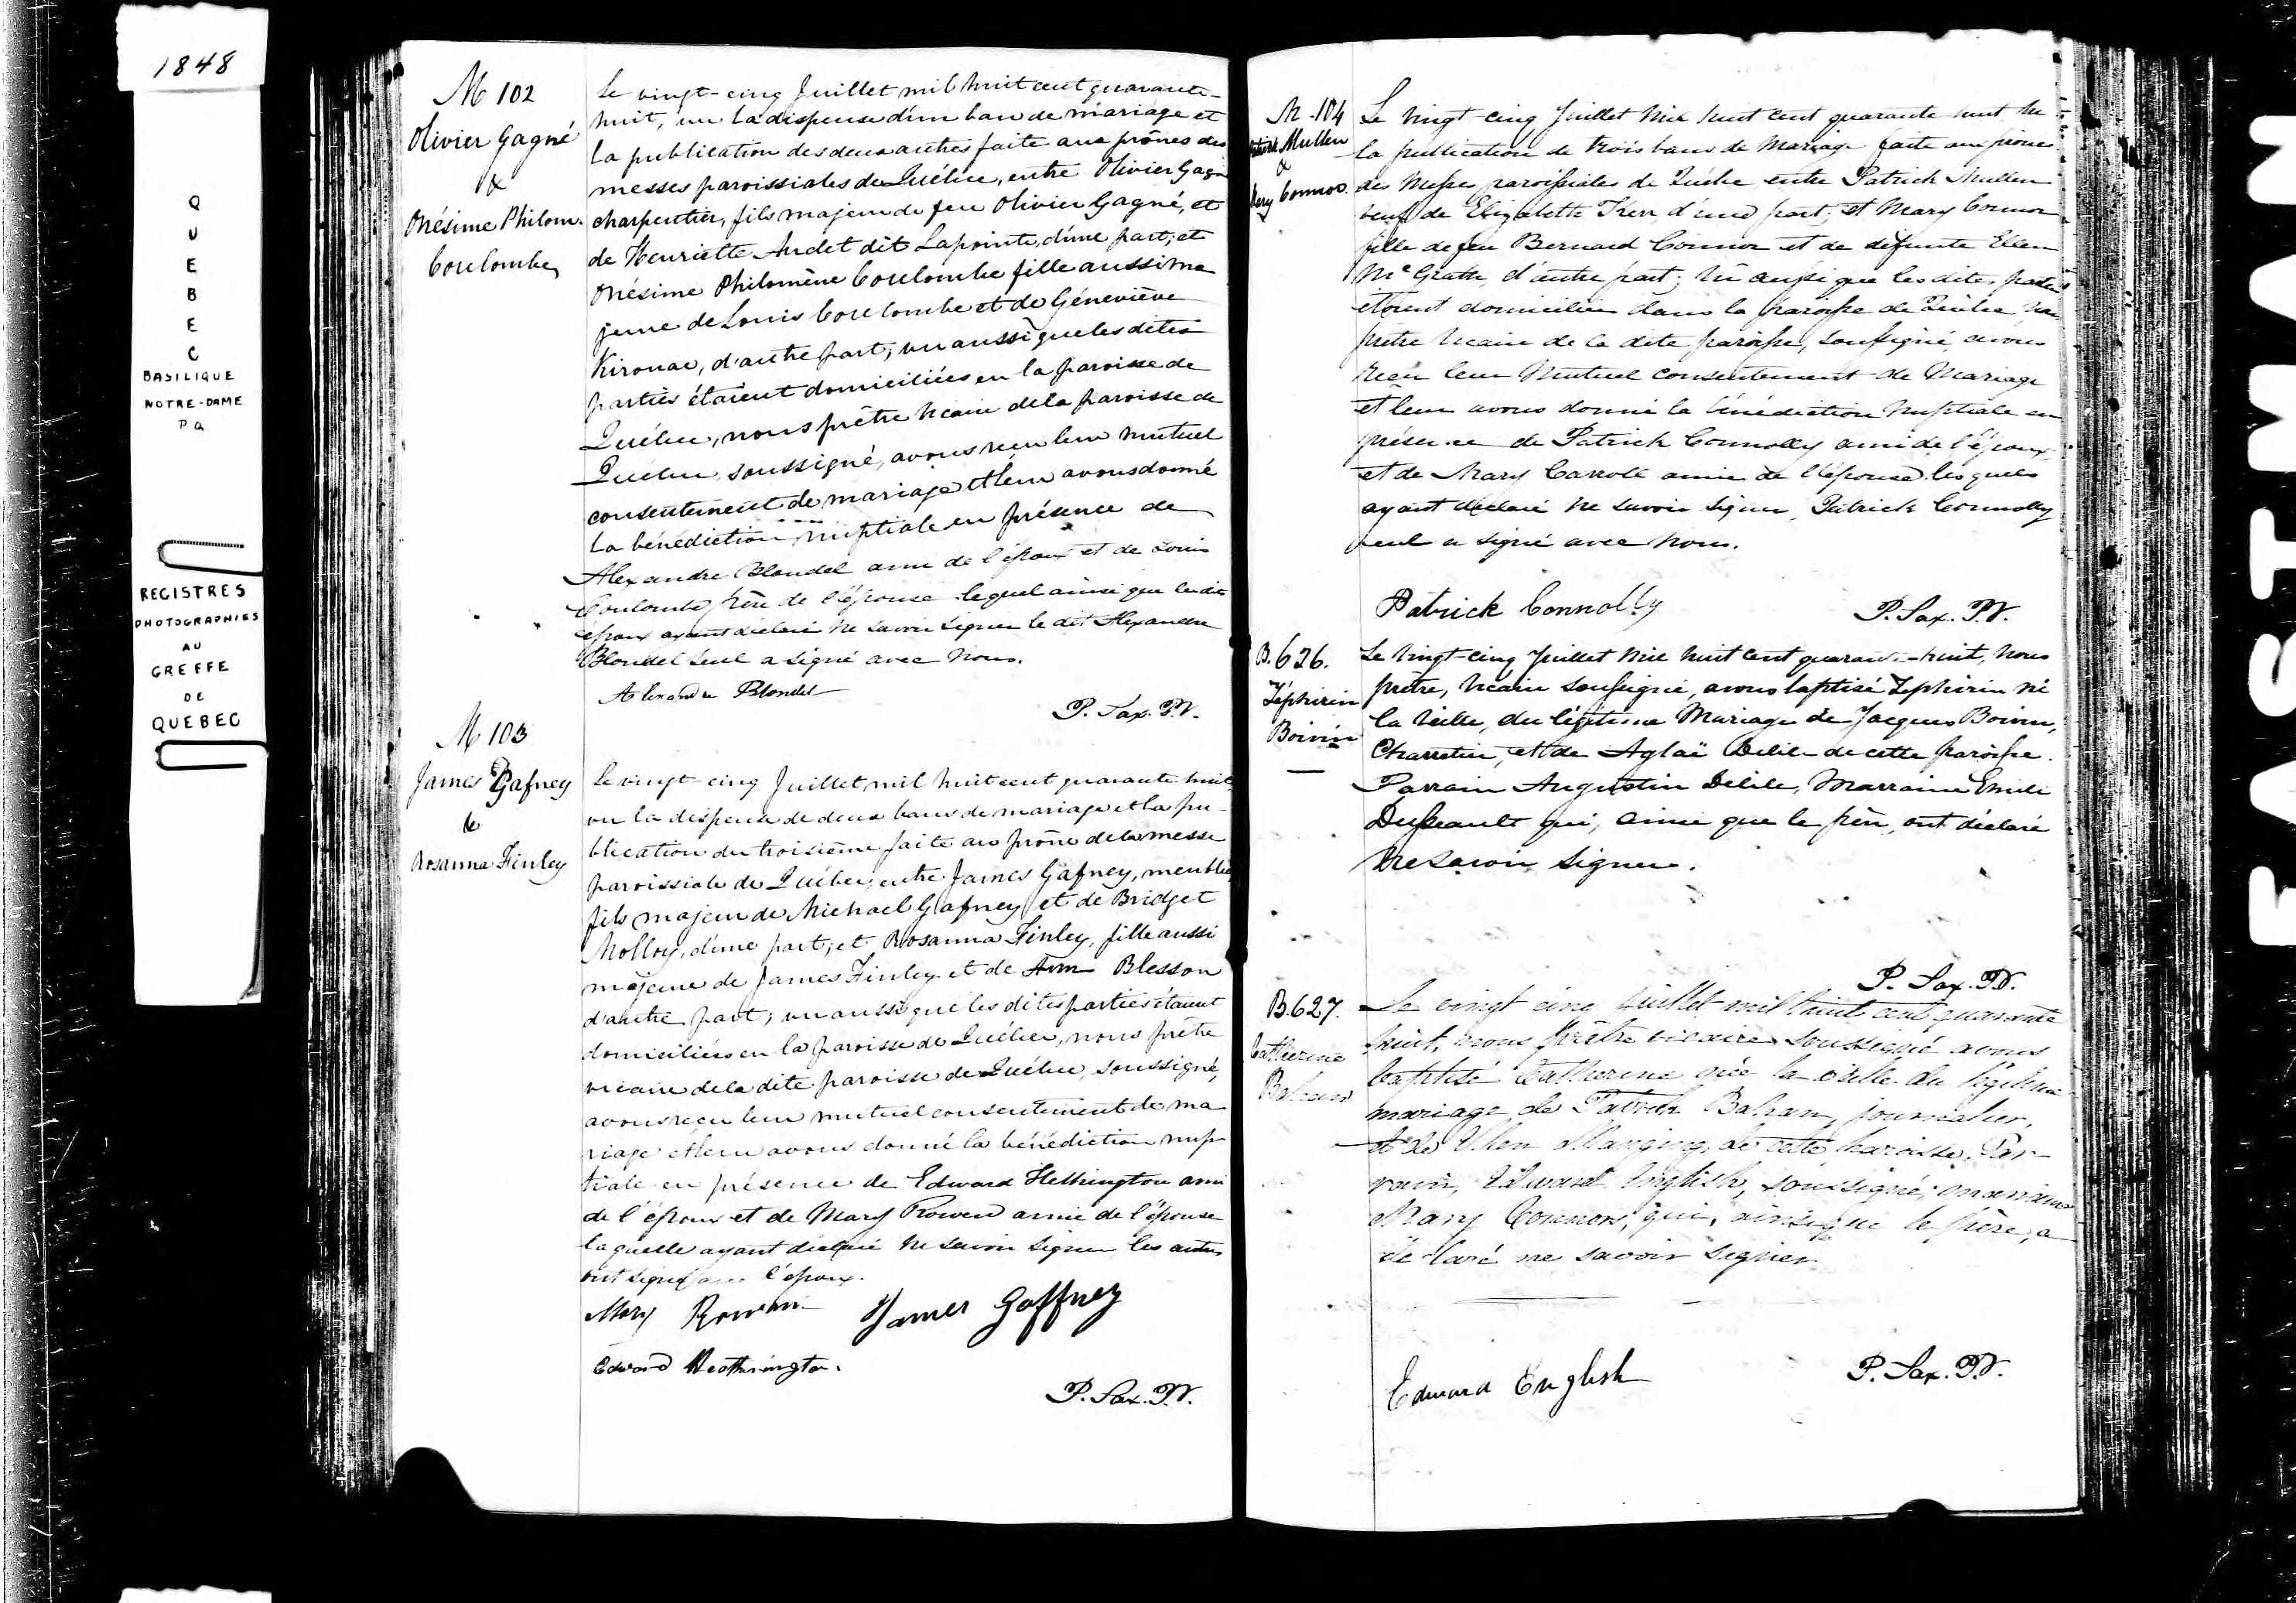 1848
QUEBEC
BASILIQUE
NOTRE-DAME
PQ
REGISTRES
PHOTOGRAPHIES
AU
GREFFE
DE
QUEBEC
M 102
Olivier Gagné
&
Onésime Philom.
Coulombe
Le vingt-cinq Juillet mil huit cent quarante-
huit, vu la dispense d'un ban de mariage et
la publication des deux autres faite aux prônes des
messes paroissiales de Québec, entre Olivier Gagné
charpentier, fils majeur de feu Olivier Gagné, et
de Henriette Audet dit Lapointe, d'une part; et
Onésime Philomène Coulombe fille aussi ma
jeure de Louis Coulombe et de Géneviève
Kirouac, d'autre part; vu aussi que les dites
parties étaient domiciliées en la paroisse de
Québec, nous prêtre vicaire de la paroisse de
Québec soussigné, avons reçu leur mutuel
consentement de mariage et leur avons donné
la bénédiction nuptiale en présence de
Alexandre Blondel ami de l'époux et de Louis
Coulombe père de l'épouse lequel ainsi que les dits
époux ayant déclaré ne savoir signer le dit Alexandre
Blondel seul a signé avec nous.
Alexandre Blondel
P. Sax. P.V.
M 103
James Gafney
&
Rosanna Finley
Le vingt-cinq Juillet mil huit cent quarante-huit
vu la dispense de deux bans de mariage et la pu-
blication du troisième faite au prône de la messe
paroissiale de Québec, entre James Gafney, meublier
fils majeur de Michael Gafney et de Bridget
Molloy, d'une part; et Rosanna Finley, fille aussi
majeure de James Finley et de Ann Blesson
d'autre part; vu aussi que les dites parties étaient
domiciliées en la paroisse de Québec, nous prêtre
vicaire de la dite paroisse de Québec, soussigné,
avons reçu leur mutuel consentement de ma
riage et leur avons donné la bénédiction nup-
tiale en présence de Edward Hethington ami
de l'époux et de Mary Rowen amie de l'épouse
laquelle ayant déclaré ne savoir signer les autres
ont signé avec l'époux.
Mary Rowan James Gaffney
Edward Heatherington.
P. Sax. P.V.
M. 104
Patrick Mullen
&
Mary Connor.
Le vingt cinq Juillet mil huit cent quarante huit vu
la publication de trois bans de Mariage faite aux prones
des Messes paroissiales de Québec entre Patrick Mullen
veuf de Elizabeth Kerr d'une part; et Mary Connor
fille de feu Bernard Connor et de défunte Ellen
McGrath d'autre part; vu aussi que les dites parties
étoient domiciliées dans la paroisse de Québec, nous
prêtre vicaire de la dite paroisse, soussigné, avons
reçu leur Mutuel consentement de Mariage
et leur avons donné la bénédiction Nuptiale en
présence de Patrick Connolly ami de l'époux
et de Mary Carroll amie de l'épouse lesquels
ayant déclaré ne savoir signer, Patrick Connolly
seul a signé avec nous.
Patrick Connolly
P. Sax. P.V.
B. 626.
Zéphirin
Boivin
Le vingt-cinq Juillet mil huit cent quarante-huit, nous
prêtre, vicaire soussigné, avons baptisé Zéphirin né
la veille, du légitime Mariage de Jacques Boivin,
Charretier, et de Aglaë Delile de cette paroisse.
Parrain Augustin Delile, Marraine Emilie
Dusseault qui, ainsi que le père, ont déclaré
ne savoir signer.
P. Sax. P.V.
B. 627.
Catherine
Bahan
Le vingt cinq Juillet mil huit cent quarante
huit, nous prêtre vicaire soussigné avons
baptisé Catherine née la veille du légitime
mariage de Patrick Bahan, journalier,
et de Ellen de cette paroisse. Par-
rain, Edward English, soussigné; marraine
Mary Connors, qui, ainsi que le père, a
déclaré ne savoir signer.
Edward English
P. Sax. P.V.
EASTMAN